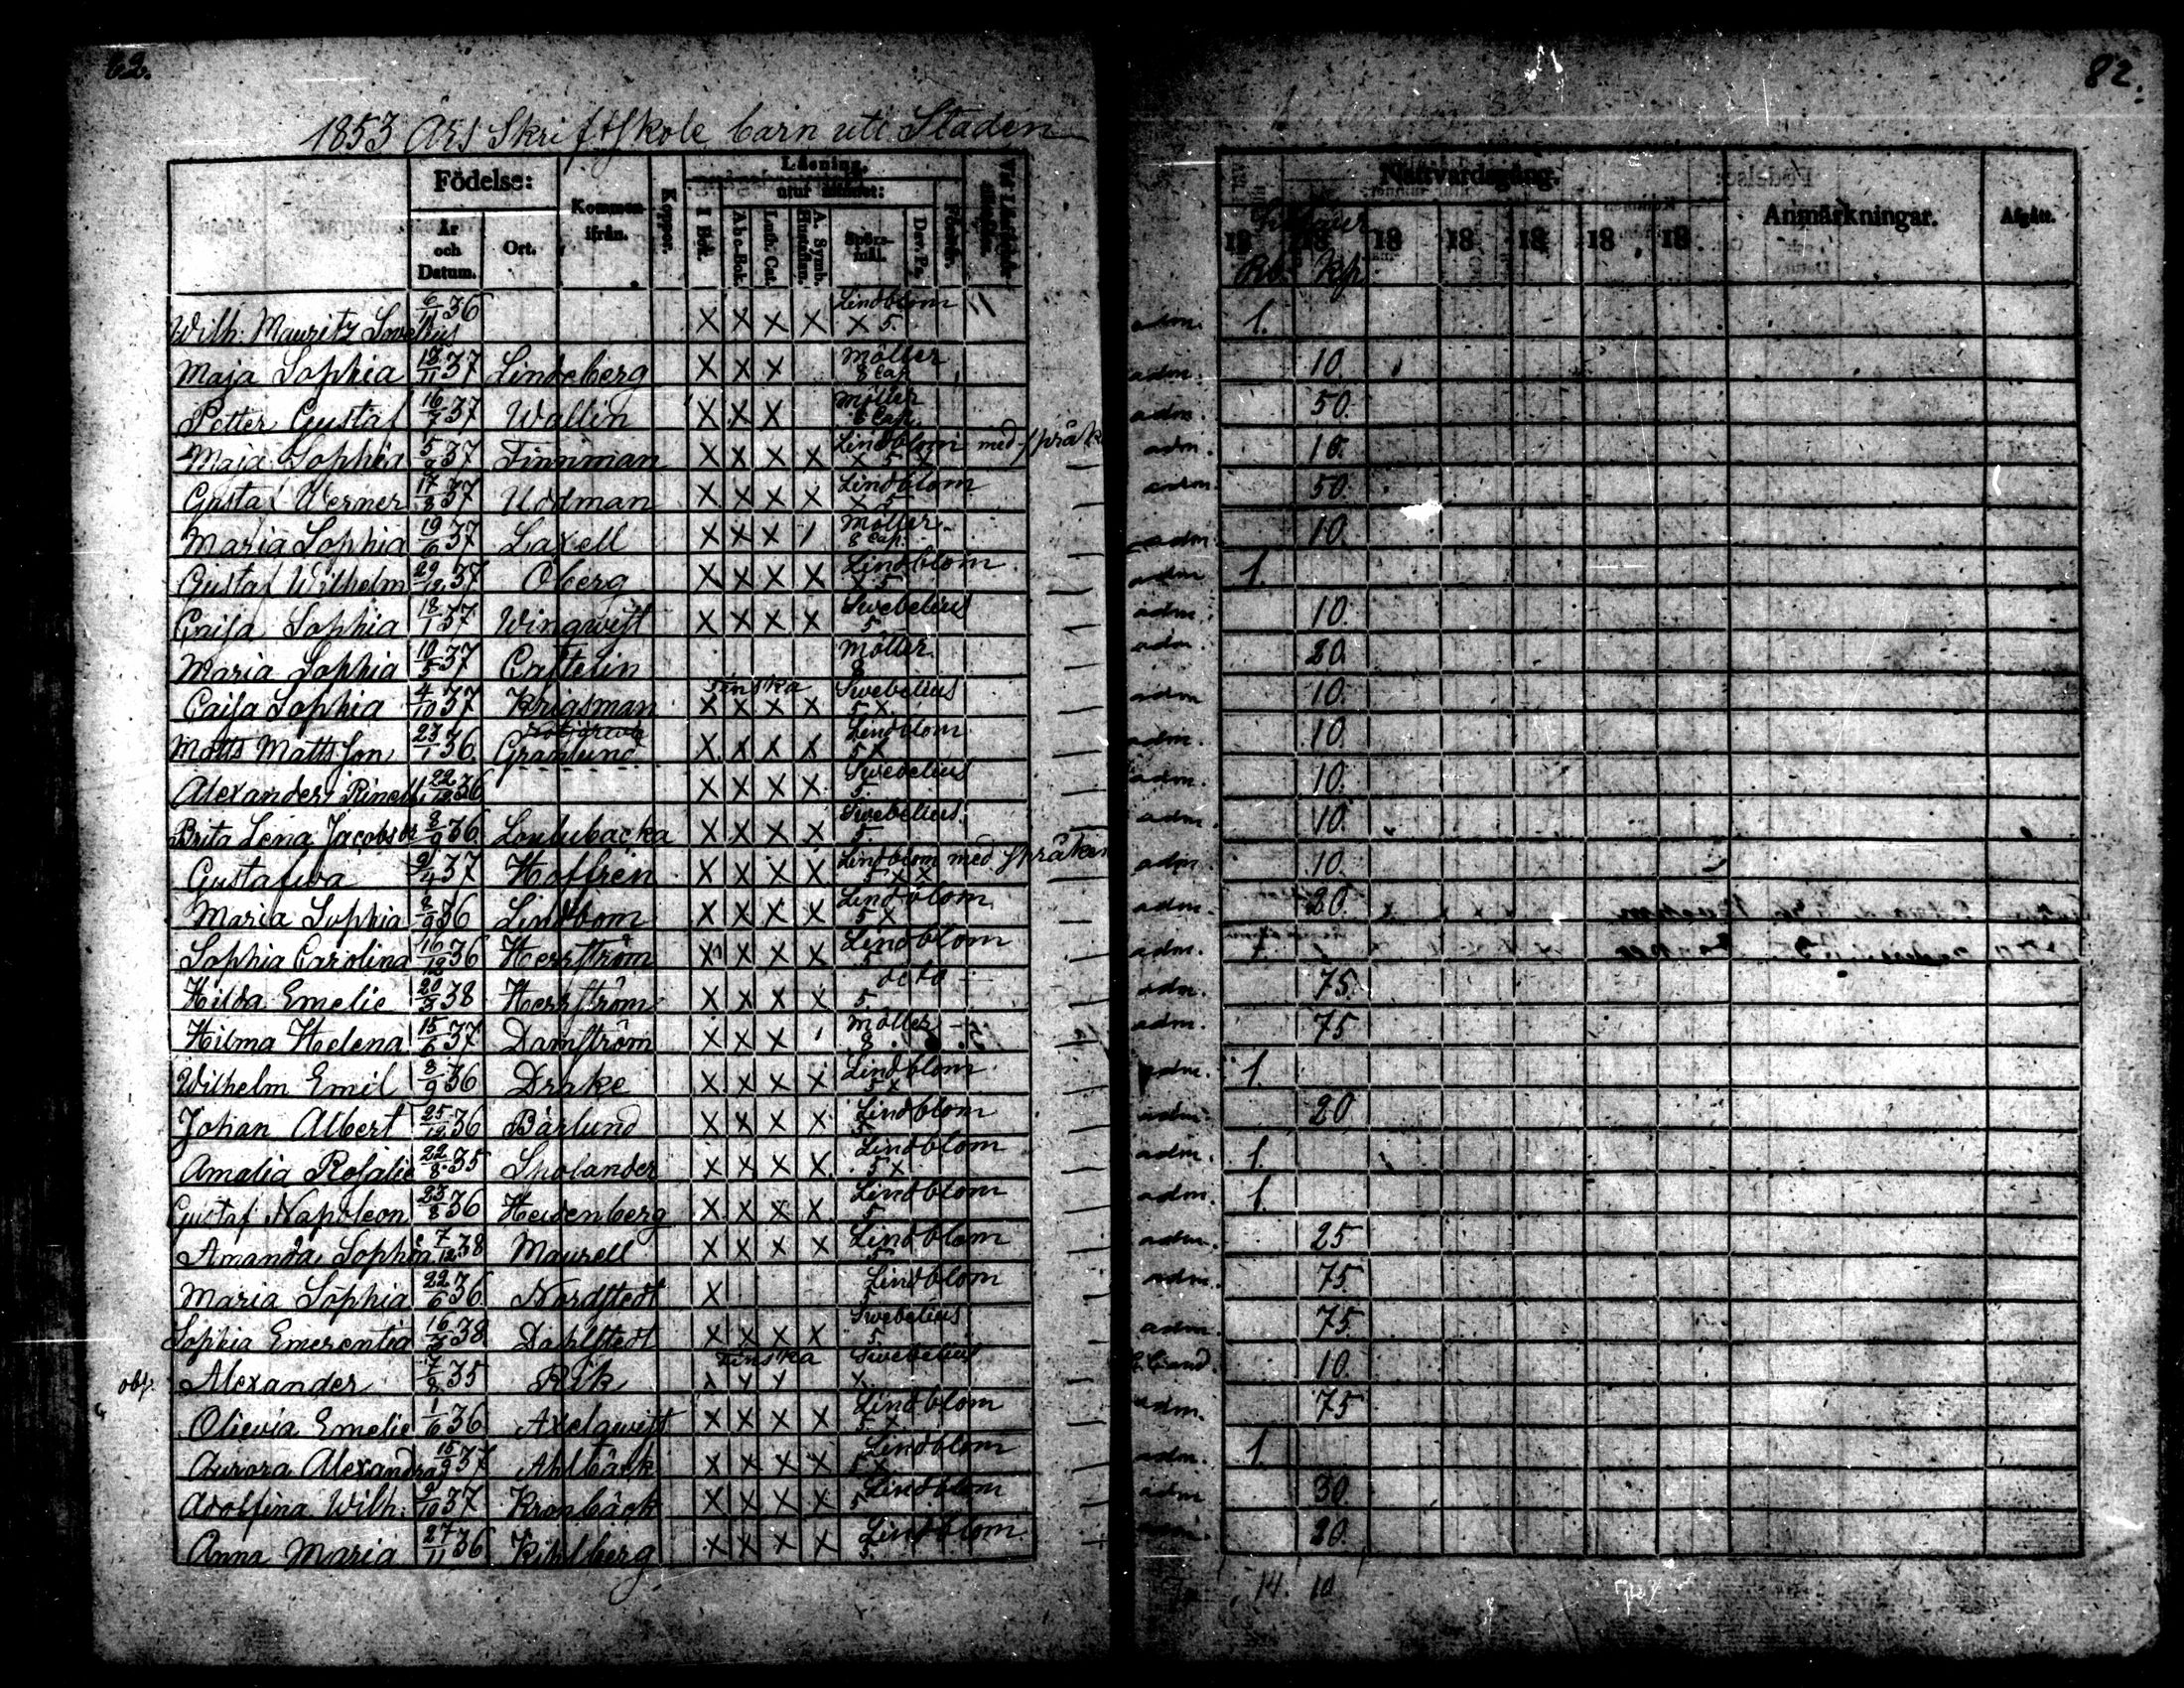 62.
82.
1853 Års Skriftskole barn uti Staden
Födelse:
År och Datum.
Ort.
Kommen ifrån.
Koppor.
Läsning.
utur Minnet:
I Bok.
A b c-Bok.
Luth. Cat.
A. Symb. Hustaflan.
Spörsmål.
Dav. Ps.
Nattvardsgång.
18 18 18 18 18 18 18
Rb. Kp.
Anmärkningar.
Afgått.
Wilh. Mauritz 6/11 36 X X X X Lindblom X 5. adm. 1.
Maja Sophia 18/11 37 Lindeberg X X X Möller 8 Cap adm. 10.
Petter Gustaf 16/7 37 Wallin X X X Möller 6 Cap. adm. 50.
Maja Sophia 5/9 37 Finnman X X X X Lindblom med språk X 5 adm. 10.
Gustaf Werner 17/8 37 Uddman X X X X Lindblom X 5 adm. 50.
Maria Sophia 19/6 37 Laxell X X X Möller 8 Cap. adm. 10.
Gustaf Wilhelm 29/12 37 Öberg X X X X Lindblom X 5 adm 1.
Caisa Sophia 18/1 37 Wingwist X X X X Swebelius 5 adm. 10.
Maria Sophia 10/5 37 Castelin Möller 8 adm. 20.
Caisa Sophia 4/10 37 Krigsman Finska X X X X Swebelius 5 X adm 10.
Matts Mattsson 23/1 36. Granlund X X X X Lindblom 5 X adm. 10.
Alexander 22/12 36 X X X X Swebelius 5 adm. 10.
Brita Lena Jacobsdr 8/9 36 X X X X Swebelius 5. adm. 10.
Gustafwa 9/4 37 Hoffrén X X X X Lindblom med språken 5 X X adm. 10.
Maria Sophia 8/9 36 Lindbom X X X X Lindblom 5 X adm. 20.
Sophia Carolina 16/12 36 Herrström X X X X Lindblom 5 adm.
Hilda Emelie 20/3 38 Herrström X X X X dito 5 adm. 75.
Hilma Helena 15/6 37 Damström X X X Möller 8 adm. 75
Wilhelm Emil 8/9 36 Drake X X X X Lindblom 5 X adm. 1.
Johan Albert 25/12 36 Bärlund X X X X Lindblom X adm. 20
Amalia Rosalie 22/8 35 X X X X Lindblom 5 X adm. 1.
Gustaf Napoleon 23/8 36 Heidenberg X X X X Lindblom 5 adm. 1.
Amanda Sophia 7/12 38 Maurell X X X X Lindblom 5 adm. 25
Maria Sophia 22/6 36 Nordstedt X Lindblom 5 adm. 75
Sophia Emerentia 16/3 38 Dahlstedt X X X X Swebelius 5. adm. 75
obs. Alexander 7/8 35 Rik Finska X X X Swebelius X 10.
Oliewia Emelie 1/6 36 Axelqwist X X X X Lindblom 5. X adm. 75
Aurora Alexandra 15/9 37 Ahlbäck X X X X Lindblom 5 X adm. 1.
Adolfina Wilh. 9/10 37 Kronbäck X X X X Lindblom 5 adm 30.
Anna Maria 27/11 36 Kihlberg X X X X Lindblom 5. adm. 20.
14. 10